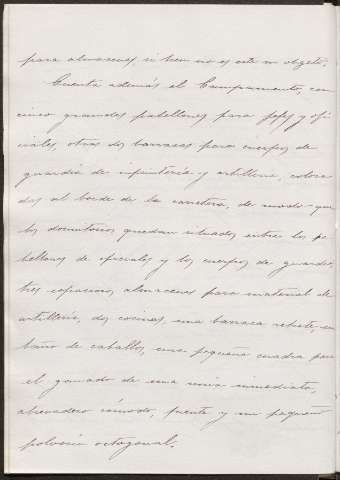 para almacenes, si bien no es este su objeto.
Cuenta además el Campamento, con
cinco grandes pabellones para jefes y ofi
ciales, otras dos barracas para cuerpos de
guardia de infantería y artillería, coloca
das al borde de la carretera, de modo que
los dormitorios quedan situados entre los pa
bellones de oficiales y los cuerpos de guardia,
tres espaciosos almacenes para material de
artillería, dos cocinas, una barraca retrete, un
baño de caballos, una pequeña cuadra para
el ganado de una noria inmediata,
abrevadero cómodo, fuente y un pequeño
polvorín octogonal.